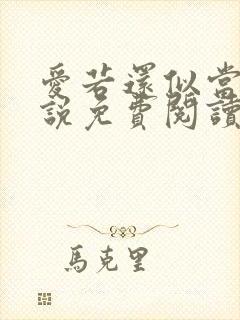 愛若還似當
說免費閱讀
馬克里